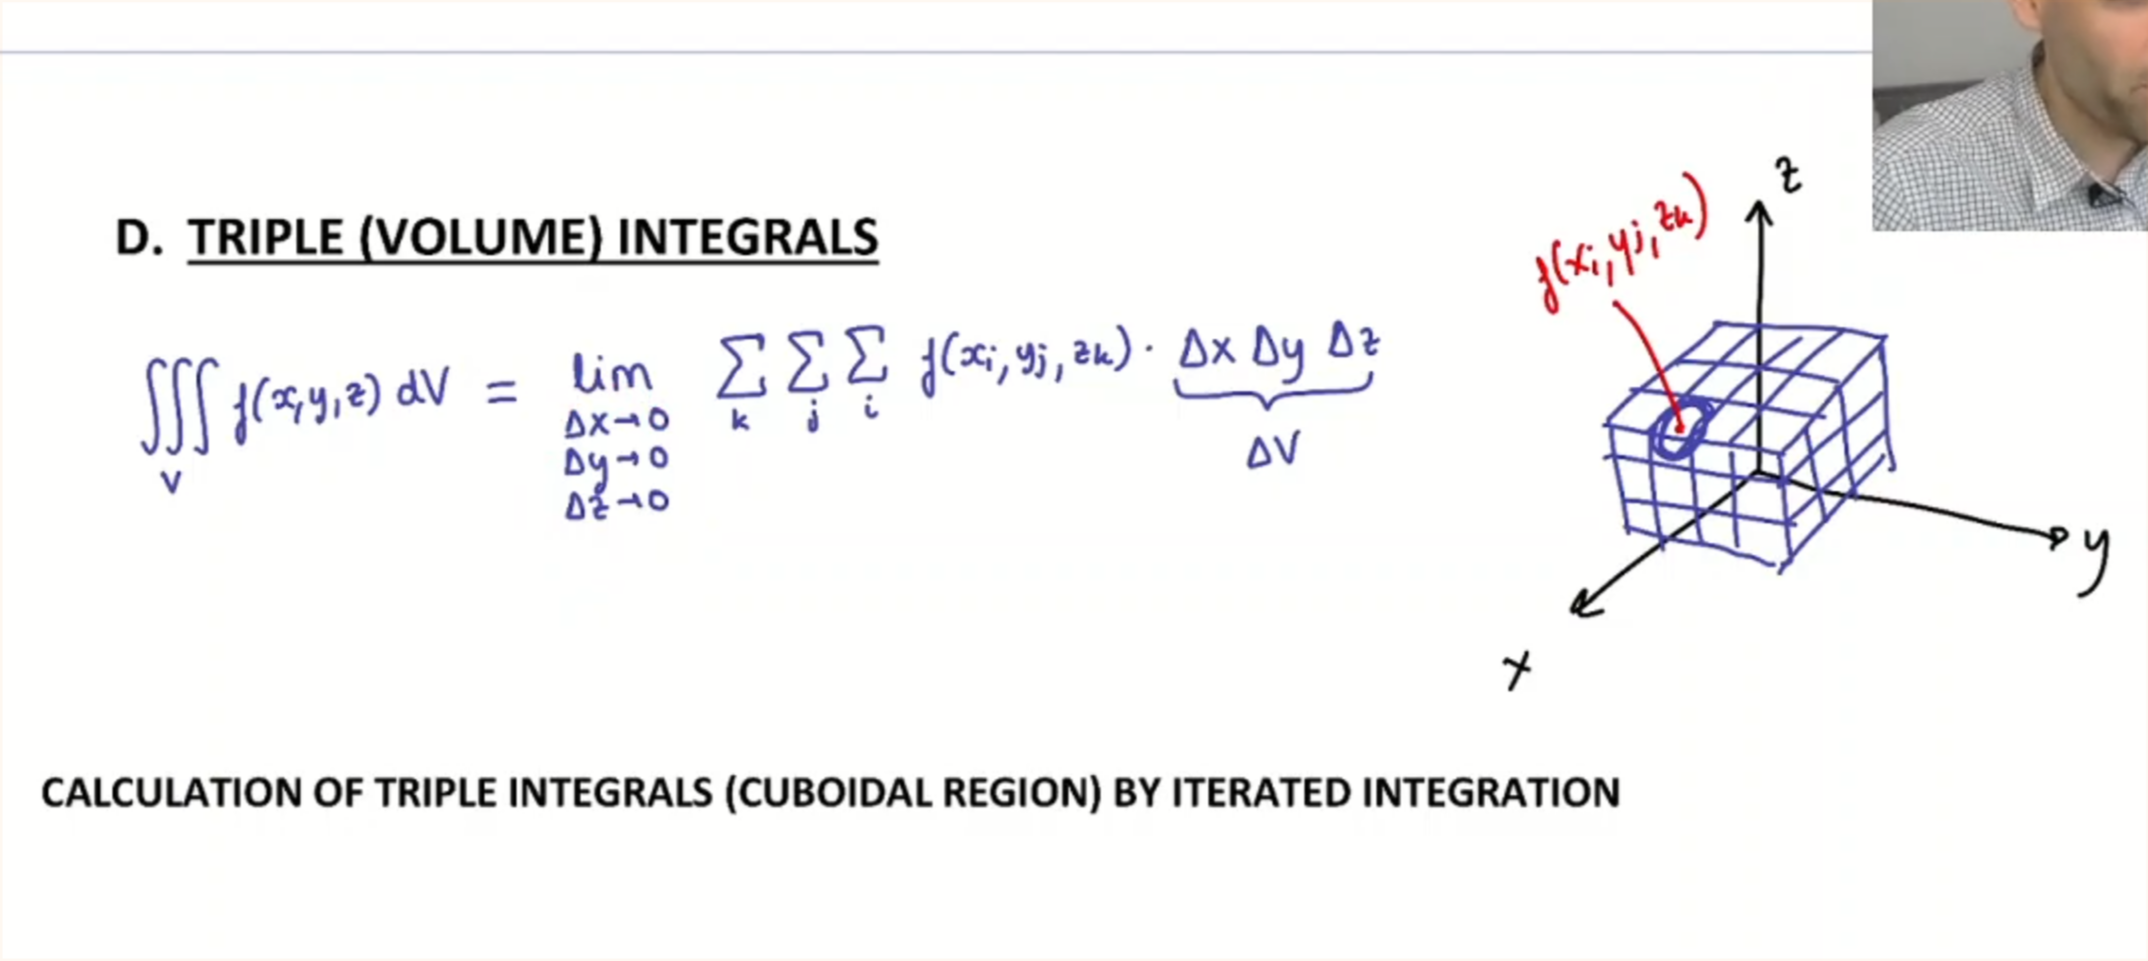 D. TRIPLE (VOLUME) INTEGRALS
∭ f(x,y,z) dV = lim Σ Σ Σ f(xi, yj, zk) · Δx Δy Δz
V Δx→0 k j i ΔV
Δy→0
Δz→0
f(xi, yj, zk)
z
y
x
CALCULATION OF TRIPLE INTEGRALS (CUBOIDAL REGION) BY ITERATED INTEGRATION